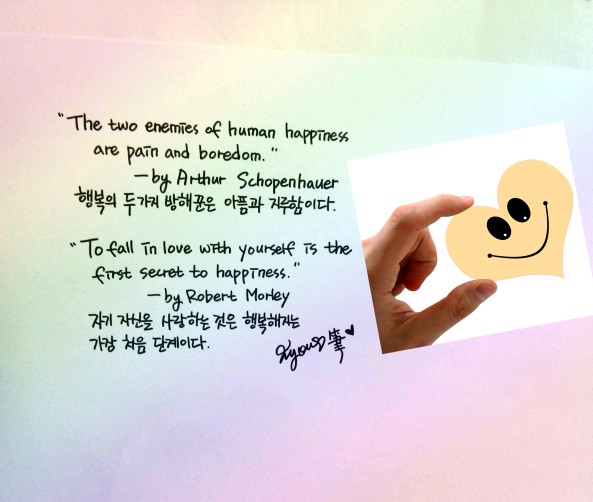 "The two enemies of human happiness
are pain and boredom."
—by Arthur Schopenhauer
행복의 두가지 방해꾼은 아픔과 지루함이다.
"To fall in love with yourself is the
first secret to happiness."
—by Robert Morley
자기 자신을 사랑하는 것은 행복해지는
가장 처음 단계이다.
Kyoung筆